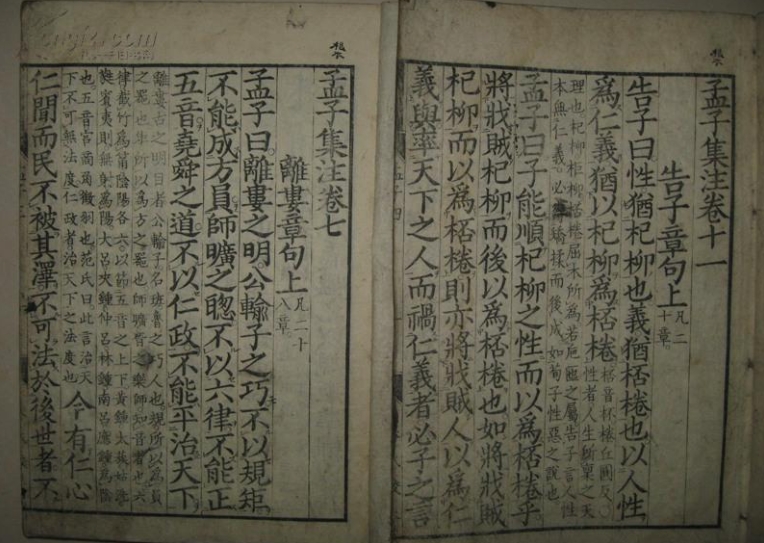 孟子集注卷十一
告子章句上凡二十章
告子曰性猶杞柳也義猶桮棬也以人性
爲仁義猶以杞柳爲桮棬
桮音杯棬丘圓反○
性者人生所稟之天
理也杞柳柜柳桮棬屈木所爲若巵匜之屬告子言人性
本無仁義必待矯揉而後成如荀子性惡之說也
孟子曰子能順杞柳之性而以爲桮棬乎
將戕賊杞柳而後以爲桮棬也如將戕賊
杞柳而以爲桮棬則亦將戕賊人以爲仁
義與率天下之人而禍仁義者必子之言
孟子集注卷七
離婁章句上凡二十八章
孟子曰離婁之明公輸子之巧不以規矩
不能成方員師曠之聦不以六律不能正
五音堯舜之道不以仁政不能平治天下
離婁古之明目者公輸子名班魯之巧人也規所以爲員
之器也矩所以爲方之器也師曠晉之樂師知音者也六
律截竹爲筩陰陽各六以節五音之上下黃鍾太蔟姑洗
蕤賓夷則無射爲陽大呂夾鍾仲呂林鍾南呂應鍾爲陰
也五音宮商角徵羽也范氏曰此言治天
下不可無法度仁政者治天下之法度也
今有仁心
仁聞而民不被其澤不可法於後世者不